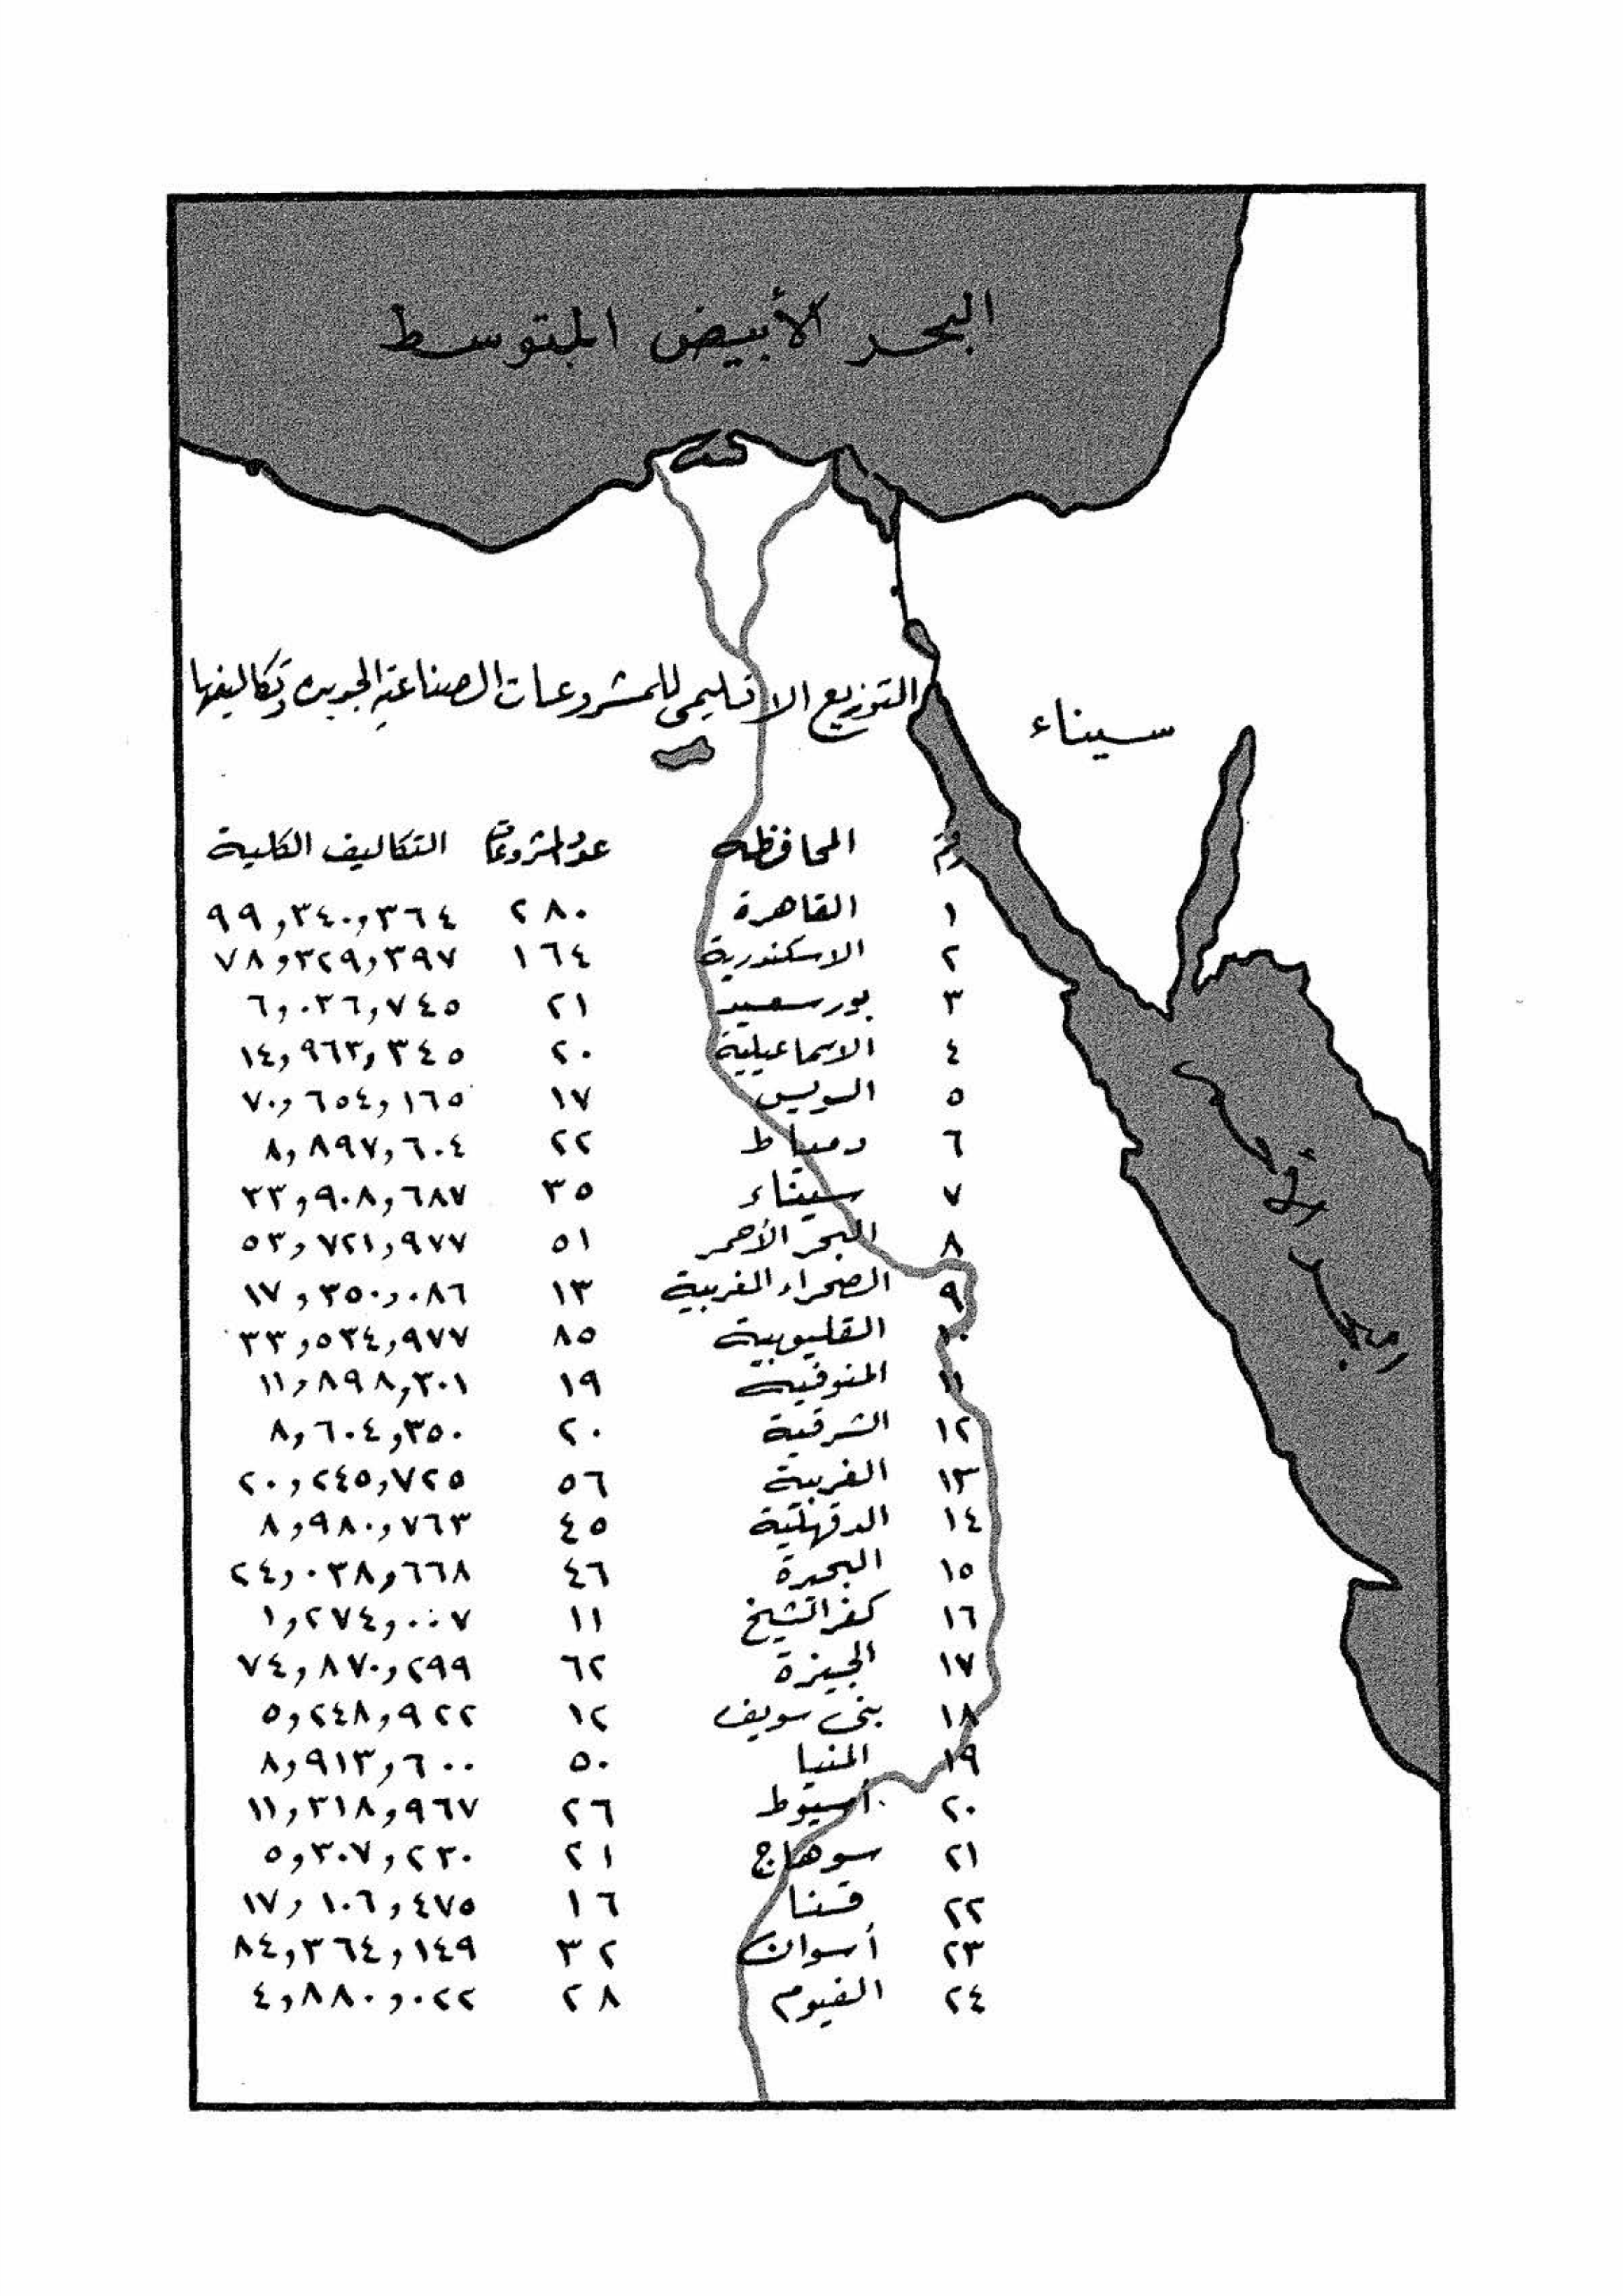 البحر الأبيض المتوسط
التوزيع الاقليمى للمشروعات الصناعية الجديده وتكاليفها
سيناء
رقم المحافظه عدد المشروعات التكاليف الكلية
١ القاهرة ٢٨٠ ٩٩,٣٤٠,٣٦٤
٢ الاسكندرية ١٦٤ ٧٨,٣٢٩,٣٩٧
٣ بورسعيد ٢١ ٦,٠٣٦,٧٤٥
٤ الاسماعيلية ٢٠ ١٤,٩٦٣,٣٤٥
٥ السويس ١٧ ٧٠,٦٥٤,١٦٥
٦ دمياط ٢٢ ٨,٨٩٧,٦٠٤
٧ سيناء ٣٥ ٣٣,٩٠٨,٦٨٧
٨ البحر الأحمر ٥١ ٥٣,٧٢١,٩٧٧
٩ الصحراء الغربية ١٣ ١٧,٣٥٠,٠٨٦
١٠ القليوبية ٨٥ ٣٣,٥٣٤,٩٧٧
١١ المنوفية ١٩ ١١,٨٩٨,٣٠١
١٢ الشرقية ٢٠ ٨,٦٠٤,٣٥٠
١٣ الغربية ٥٦ ٢٠,٢٤٥,٧٢٥
١٤ الدقهلية ٤٥ ٨,٩٨٠,٧٦٣
١٥ البحيرة ٤٦ ٢٤,٠٣٨,٦٦٨
١٦ كفر الشيخ ١١ ١,٢٧٤,٠٠٧
١٧ الجيزة ٦٢ ٧٤,٨٧٠,٢٩٩
١٨ بنى سويف ١٢ ٥,٢٤٨,٩٢٢
١٩ المنيا ٥٠ ٨,٩١٣,٦٠٠
٢٠ أسيوط ٢٦ ١١,٣١٨,٩٦٧
٢١ سوهاج ٢١ ٥,٣٠٧,٢٣٠
٢٢ قنا ١٦ ١٧,١٠٦,٤٧٥
٢٣ أسوان ٣٢ ٨٤,٣٦٤,١٤٩
٢٤ الفيوم ٢٨ ٤,٨٨٠,٠٢٢
البحر الأحمر